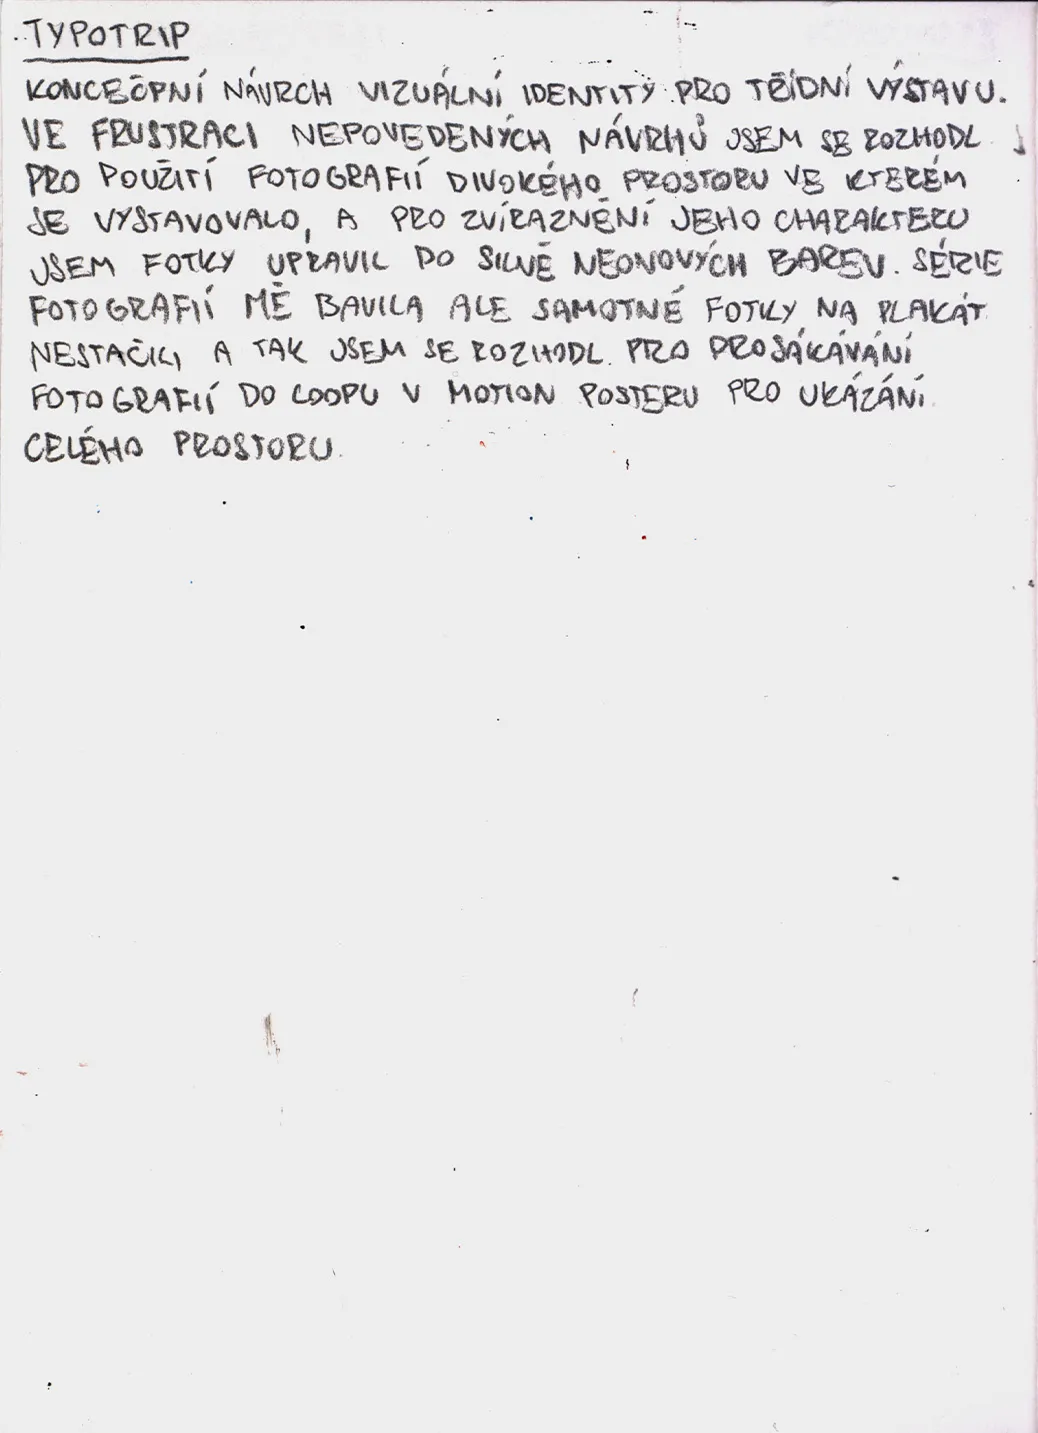 TYPOTRIP
KONCEČPNÍ NÁVRCH VIZUÁLNÍ IDENTITY PRO TŘÍDNÍ VÝSTAVU.
VE FRUSTRACI NEPOVEDENÝCH NÁVRHŮ JSEM SE ROZHODL
PRO POUŽITÍ FOTOGRAFIÍ DIVOKÉHO PROSTORU VE KTERÉM
SE VYSTAVOVALO, A PRO ZVÍRAZNĚNÍ JEHO CHARAKTERU
JSEM FOTKY UPRAVIL DO SILNĚ NEONOVÝCH BAREV. SÉRIE
FOTOGRAFIÍ MĚ BAVILA ALE SAMOTNÉ FOTKY NA PLAKÁT
NESTAČILI A TAK JSEM SE ROZHODL PRO PROSAKÁVÁNÍ
FOTOGRAFIÍ DO LOOPU V MOTION POSTERU PRO UKÁZÁNÍ
CELÉHO PROSTORU.